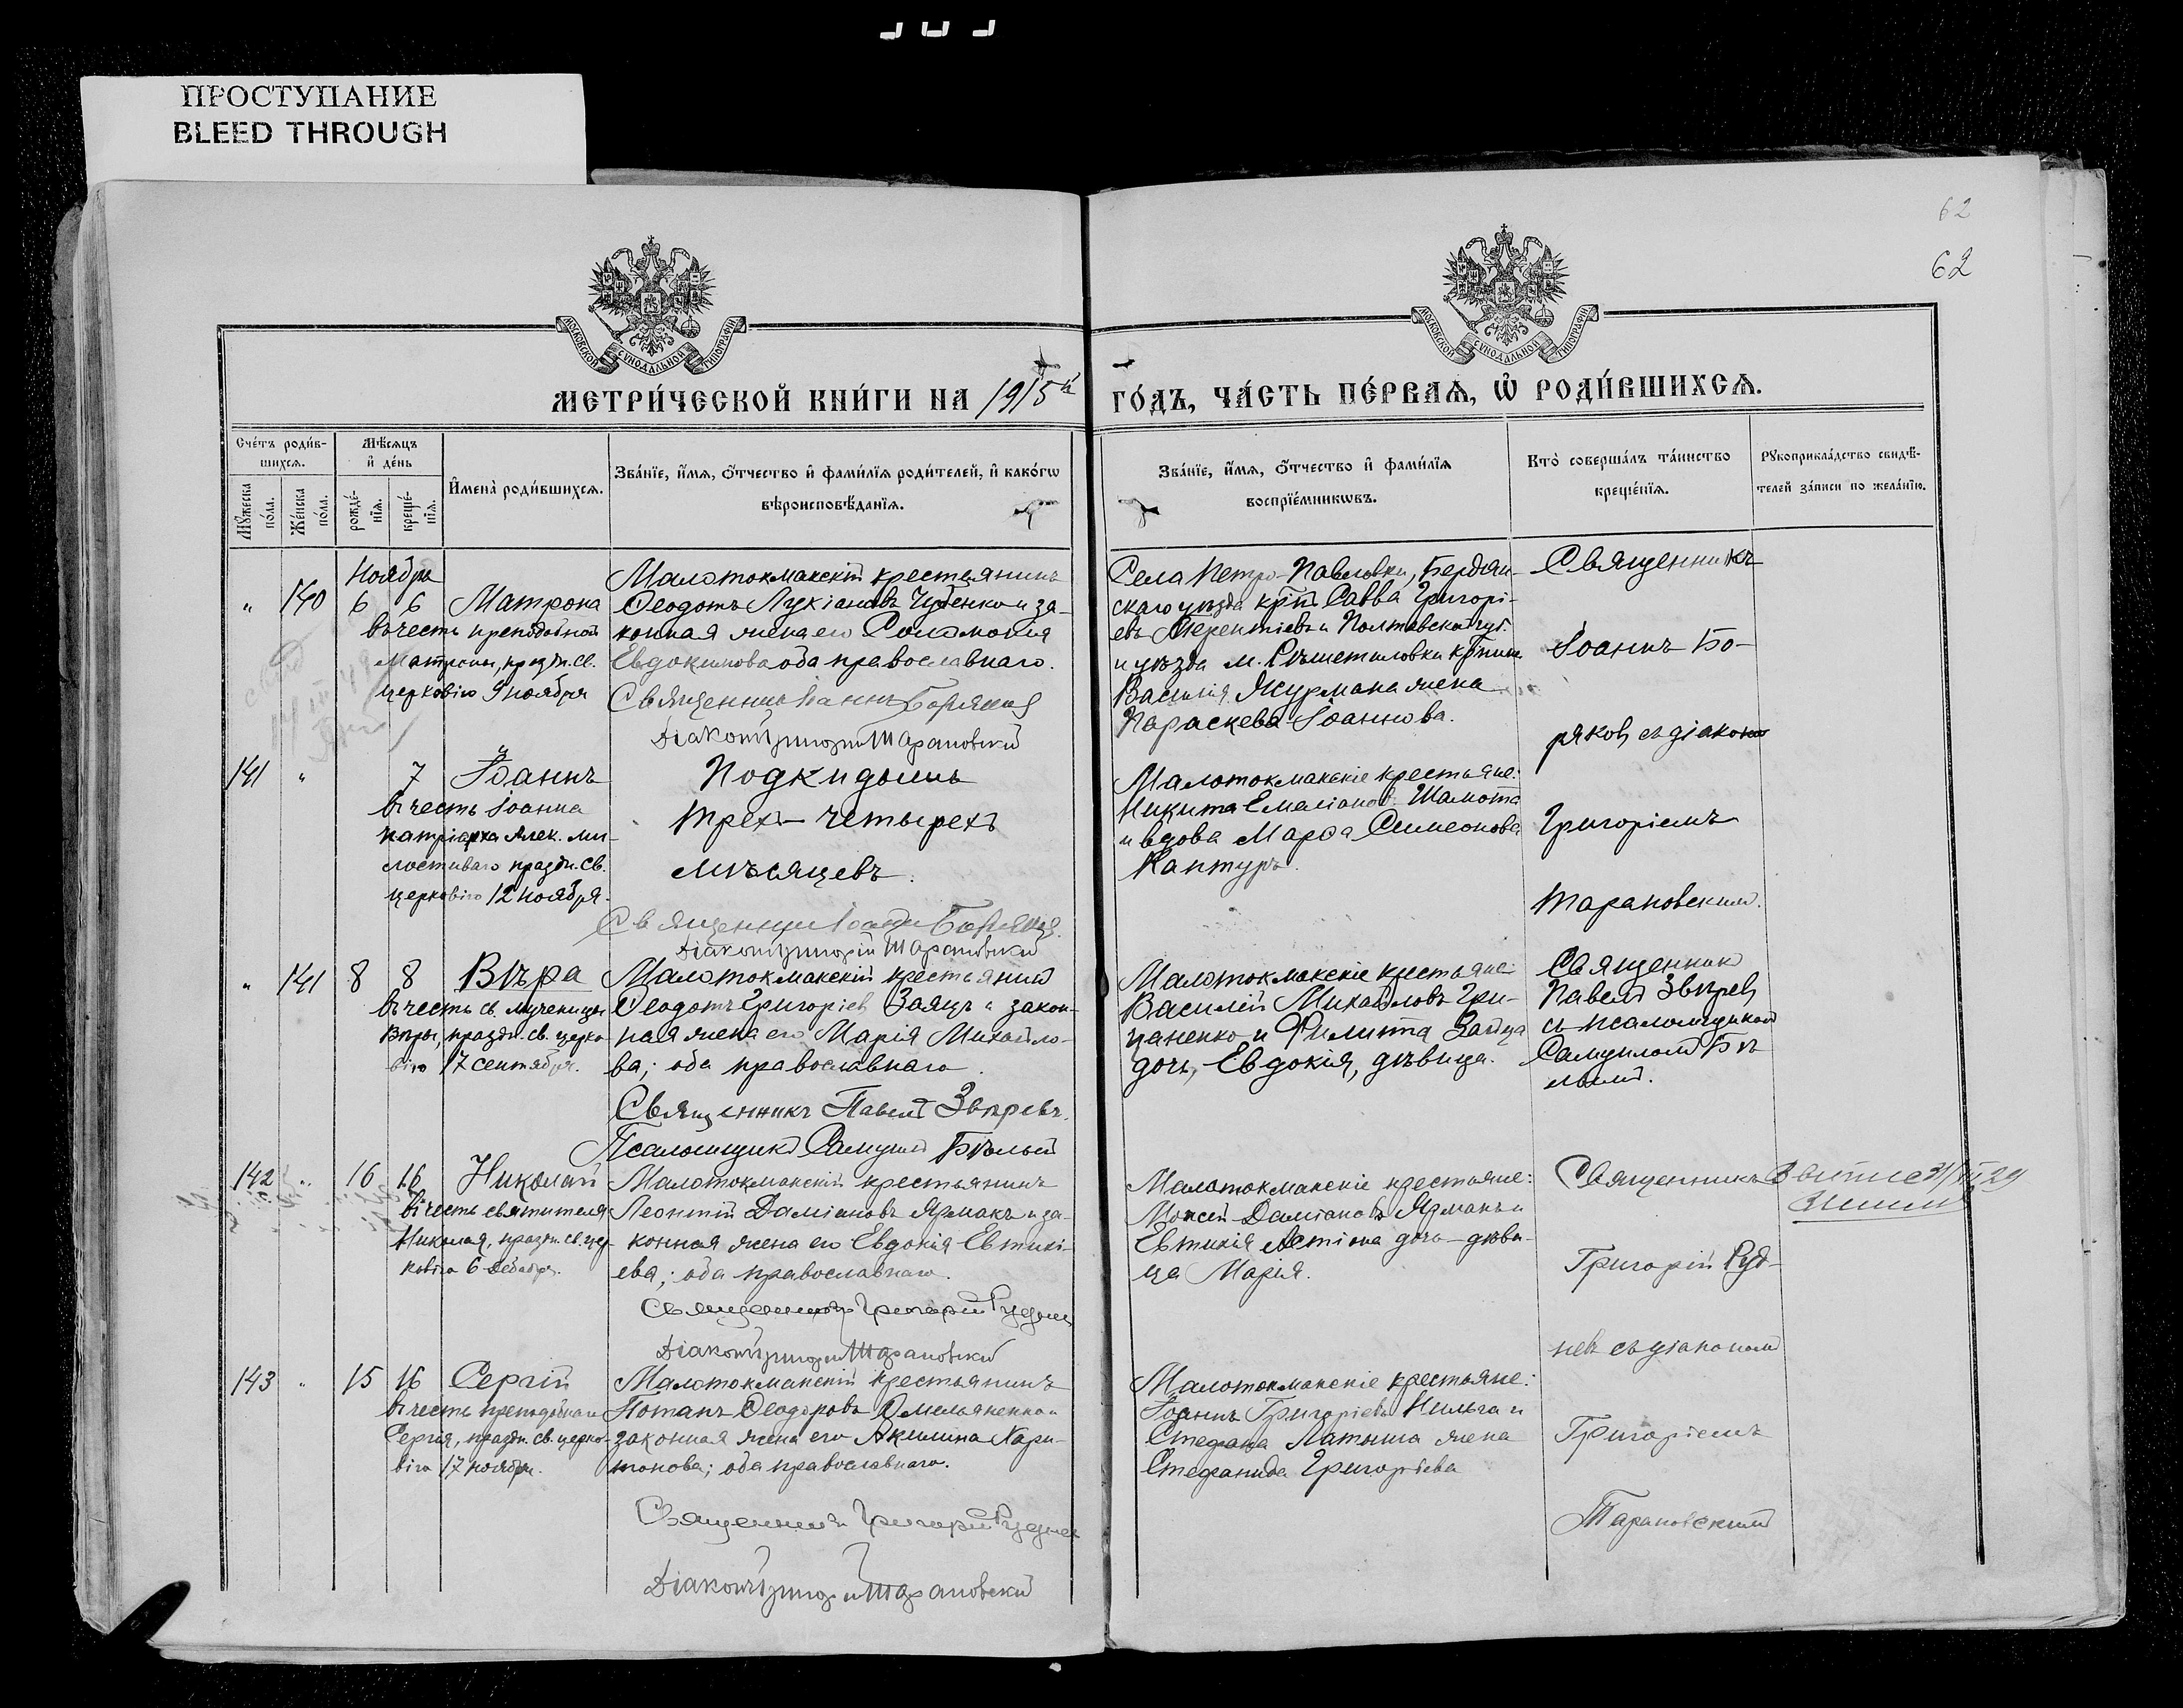 ПРОСТУПАНИЕ
BLEED THROUGH
62
62
МОСКОВСКОЙ СУНОДАЛЬНОЙ ТИПОГРАФІИ
МОСКОВСКОЙ СУНОДАЛЬНОЙ ТИПОГРАФІИ
МЕТРИ́ЧЕСКОЙ КНИ́ГИ НА 1915й
ГО́ДЪ, ЧА́СТЬ ПЕ́РВАѦ, Ѡ҆ РОДИ́ВШИХСѦ.
Сче́тъ роди́вшихсѧ.
Мꙋ́жеска по́ла.
Же́нска по́ла.
Мѣ́сѧцъ и҆ де́нь
рожде́нїѧ.
креще́нїѧ.
И҆мена̀ роди́вшихсѧ.
Зва́нїе, и҆́мѧ, ѻ҆́тчество и҆ фами́лїѧ роди́телей, и҆ како́гѡ
вѣроисповѣ́данїѧ.
Зва́нїе, и҆́мѧ, ѻ҆́тчество и҆ фами́лїѧ
воспрїе́мникѡвъ.
Кто̀ соверша́лъ та́инство
креще́нїѧ.
Рꙋкоприкла́дство свидѣ́-
телей за́писи по жела́нїю.
Ноябрь
" 140 6 6 Матрона
въ честь преподобной
Матроны, праздн. св.
церковію 9 ноября
Малотокмакскій крестьянинъ
Ѳеодотъ Лукіановъ Чубенко и за-
конная жена его Соломонія
Евдокимова оба православнаго.
Священникъ Іоаннъ Боряков
Діаконъ Григорій Тарановскій
Села Петро-Павловки, Бердян-
скаго уѣзда крнъ Савва Григорі-
евъ Терентіевъ и Полтавской губ.
и уѣзда м. Рѣшетиловки крнина
Василія Журмана жена
Параскева Іоаннова.
Священникъ
Іоаннъ Бо-
ряков, съ діакономъ
Григоріемъ
Тарановским.
141 " 7 Іоаннъ
въ честь Іоанна
патріарха Алек. ми-
лостиваго праздн. св.
церковію 12 ноября.
Подкидышъ
трех-четырехъ
мѣсяцевъ.
Священникъ Іоаннъ Боряков.
Діаконъ Григорій Тарановскій
Малотокмакскіе крестьяне:
Никита Емеліанов. Шамота
и вдова Марѳа Симеонова
Кантуръ.
" 141 8 8 Вѣра
въ честь св. мученицы
Вѣры, праздн. св. церко-
вію 17 сентября.
Малотокмакскій крестьянин
Ѳеодотъ Григоріев Заяцъ и закон-
ная жена его Марія Михайло-
ва; оба православнаго.
Священникъ Павелъ Звѣревъ.
Псаломщикъ Самуил Бѣлый
Малотокмакскіе крестьяне:
Василій Михайловъ Гри-
цаненко и Филиппа Зайца
дочь, Евдокія, дѣвица.
Священник
Павелъ Звѣрев,
съ псаломщиком
Самуилом Бѣ-
лым.
142 " 16 16 Николай
въ честь святителя
Николая, праздн. св. цер-
ковію 6 декабря.
Малотокмакскій крестьянинъ
Леонтій Даміановъ Ярмакъ и за-
конная жена его Евдокія Евтихі-
ева; оба православнаго.
Священникъ Григорій Руднев
Діаконъ Григорій Тарановскій
Малотокмакскіе крестьяне:
Моисей Даміановъ Ярмакъ и
Евтихія дочь-дѣви-
ца Марія.
Священникъ
Григорій Руд-
невъ съ діакономъ
Григоріемъ
Тарановскимъ
143 " 15 16 Сергій
въ честь преподобнаго
Сергія, праздн. св. церко-
вію 17 ноября.
Малотокмакскій крестьянинъ
Потапъ Ѳеодоровъ Омельяненко и
законная жена его Акилина Хари-
тонова; оба православнаго.
Священникъ Григорій Руднев
Діаконъ Григорій Тарановскій
Малотокмакскіе крестьяне:
Іоаннъ Григоріевъ и
Стефана Латыша жена
Стефанида Григорьева